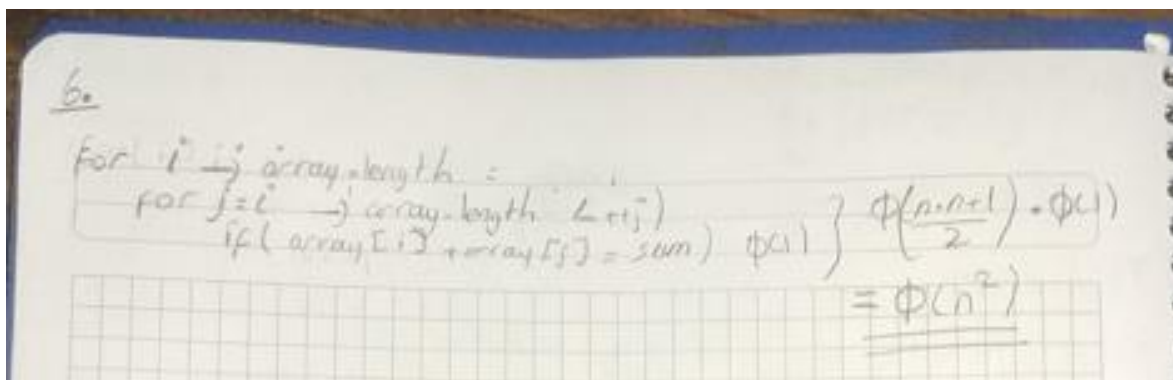 6.
for i → array.length :
for j=i → array.length (++j)
if( array[i] + array[j] = sum) Φ(1) } Φ(n.n+1/2) . Φ(1)
= Φ(n²)